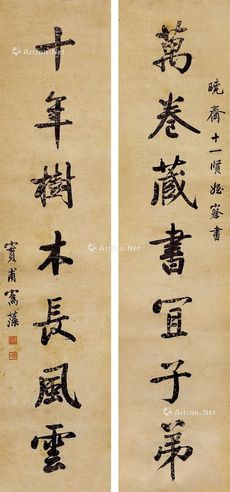 曉齋十一賢姪書
萬卷藏書宜子弟
十年樹木長風雲
甫藻
Artron.Net
Artron.Net